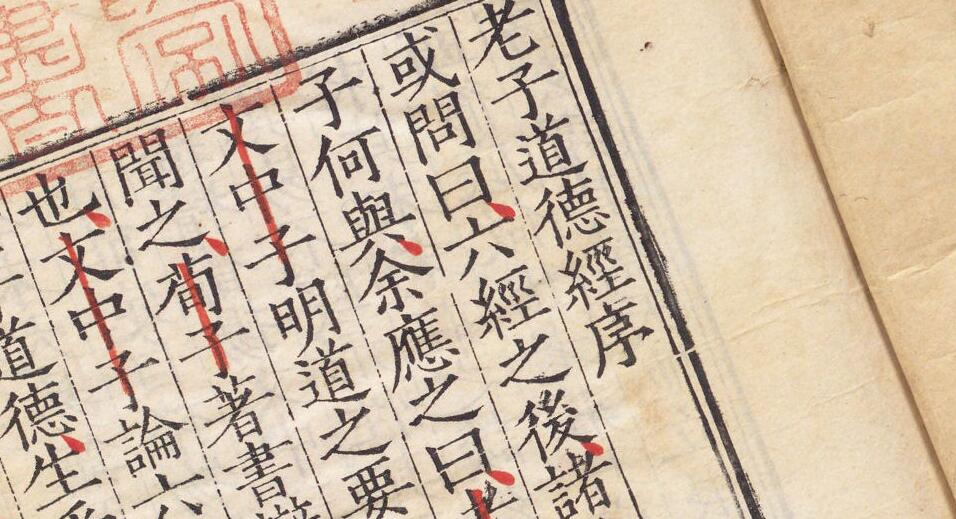 老子道德經序
或問曰六經之後諸
子何與余應之曰
文中子明道之要
聞之荀子著書
也文中子論六
道德生